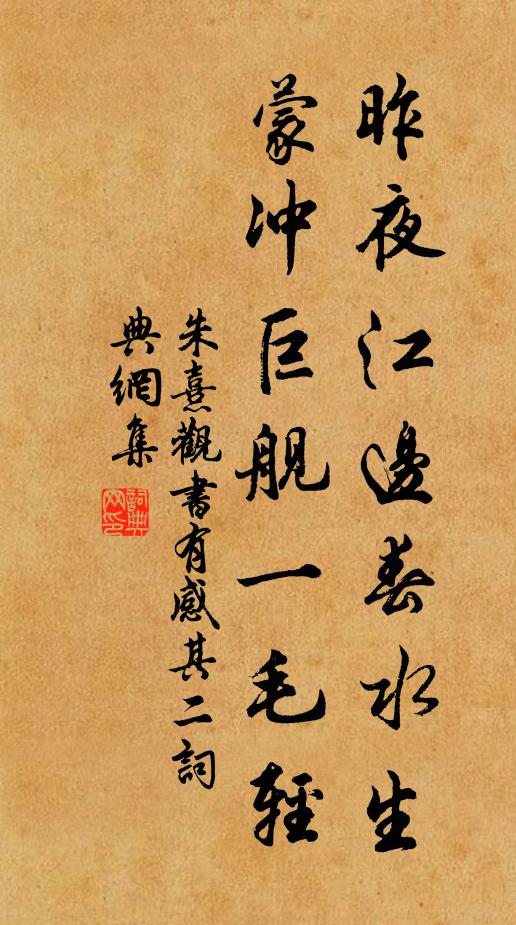 昨夜江邊春水生
蒙冲巨舰一毛輕
朱熹觀書有感其二詞
典網集
詞典
网印